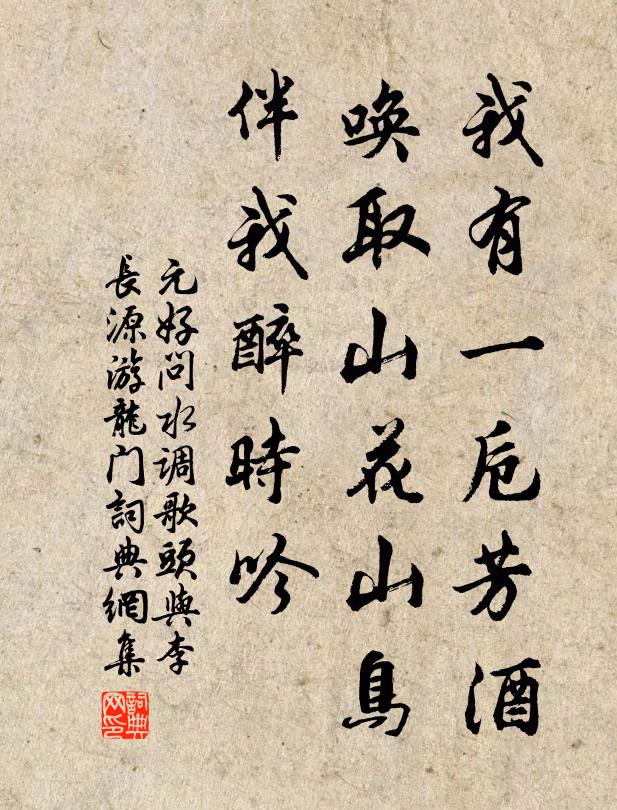 我有一卮芳酒
唤取山花山鳥
伴我醉時吟
元好问水调歌頭與李
長源游龍门詞典網集
詞典
网印